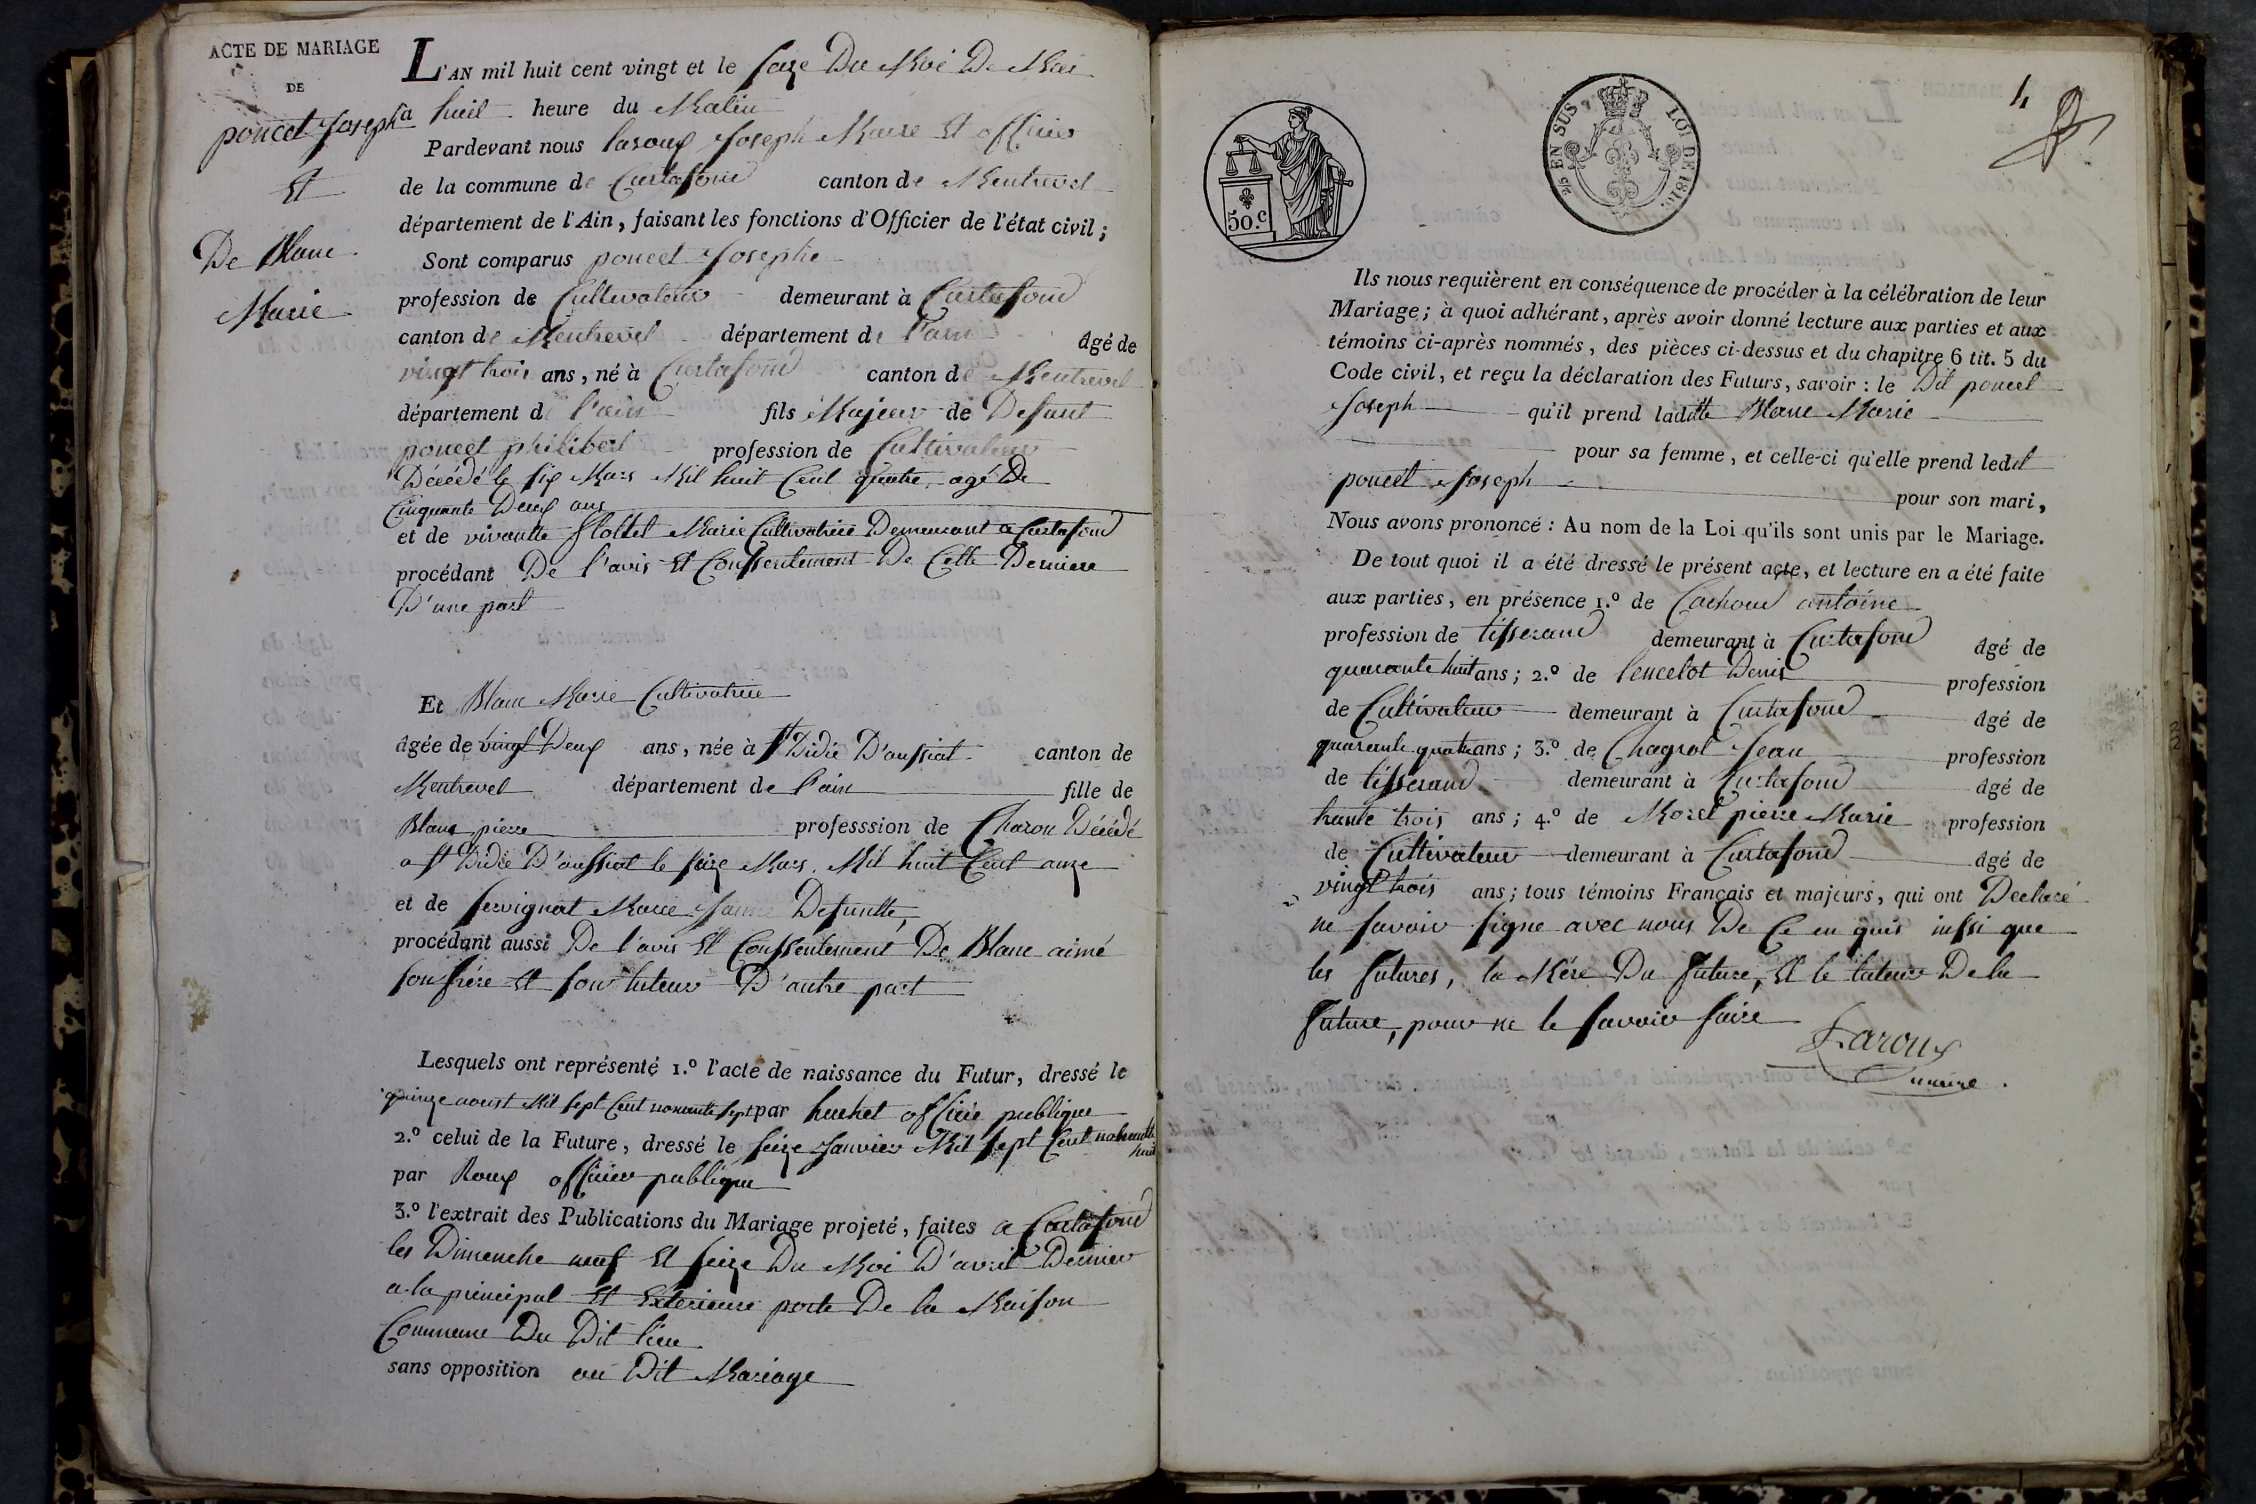 ACTE DE MARIAGE
DE
poncet Joseph
Et
De Blanc
Marie
L'AN mil huit cent vingt et le seize Du Moi De Mai
à huit heure du Matin
Pardevant nous laroux Joseph Maire Et officier
de la commune de Curtafond canton de Montrevel
département de l'Ain, faisant les fonctions d'Officier de l'état civil;
Sont comparus poncet Josephe
profession de Cultivateur demeurant à Curtafond
canton de Montrevel département de l'ain âgé de
vingt trois ans, né à Curtafond canton de Montrevel
département de l'ain fils Majeur de Defunt
poncet philibert profession de Cultivateur
Décédé le six Mars Mil huit Cent quatre, agé De
Cinquante Deux ans
et de vivantte Marie Cultivatrice Demeurant a Curtafond
procédant De l'avis Et Conssentement De Cette Derniere
D'une part
Et Blanc Marie Cultivatrice
âgée de vingt Deux ans, née à St Didié D'aussiat canton de
Montrevel département de l'ain fille de
Blanc pierre professsion de Charon Décédé
a St Didié D'aussiat le seize Mars Mil huit Cent onze
et de servignat Marie Janne Defuntte,
procédant aussi De l'avis Et Conssentement De Blanc aimé
son frére Et son tuteur D'autre part
Lesquels ont représenté 1.º l'acte de naissance du Futur, dressé le
quinze aoust Mil sept Cent nonante sept par huchet officié publique
2.º celui de la Future, dressé le seize Janvier Mil sept Cent nonantte
huit
par Roux officier publique
3.º l'extrait des Publications du Mariage projeté, faites a Curtafond
les Dimenche neuf Et seize Du Moi D'avril Dernier
a la principal Et Exterieure porte De la Maison
Commune Du Dit lieu
sans opposition au Dit Mariage
50.c
2/5 EN SUS
LOI DE 1816.
4
Ils nous requièrent en conséquence de procéder à la célébration de leur
Mariage; à quoi adhérant, après avoir donné lecture aux parties et aux
témoins ci-après nommés, des pièces ci-dessus et du chapitre 6 tit. 5 du
Code civil, et reçu la déclaration des Futurs, savoir : le Dit poncet
Joseph qu'il prend laditte Blanc Marie
pour sa femme, et celle-ci qu'elle prend ledit
poncet Joseph pour son mari,
Nous avons prononcé : Au nom de la Loi qu'ils sont unis par le Mariage.
De tout quoi il a été dressé le présent acte, et lecture en a été faite
aux parties, en présence 1.º de Cochoud antoine
profession de tisserand demeurant à Curtafond âgé de
quarante huit ans; 2.º de lencelot Denis profession
de Cultivateur demeurant à Curtafond âgé de
quarante quatre ans; 3.º de Chagrot Jean profession
de tisserand demeurant à Curtafond âgé de
trante trois ans; 4.º de Morel pierre Marie profession
de Cultivateur demeurant à Curtafond âgé de
vingt trois ans; tous témoins Français et majeurs, qui ont Declaré
ne savoir signe avec nous De Ce en quis inssi que
les futures, la Mére Du future, Et le tuteur De la
future, pour ne le savoir faire
Laroux
maire.